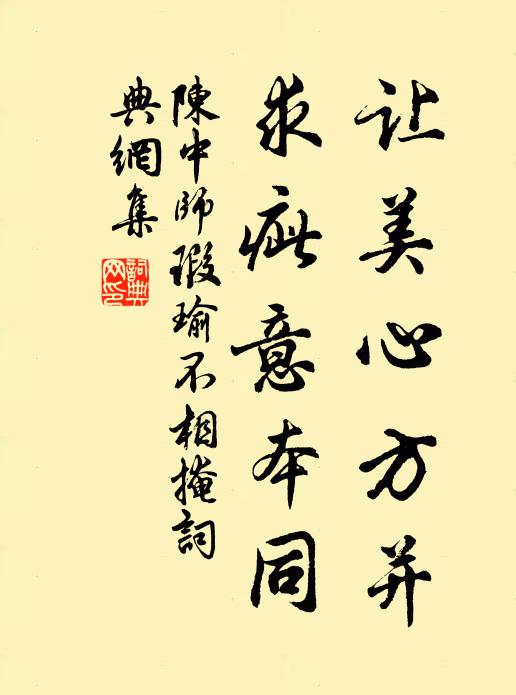 让美心方并
求疵意本同
陳中師瑕瑜不相掩詞
典網集
詞典
网印